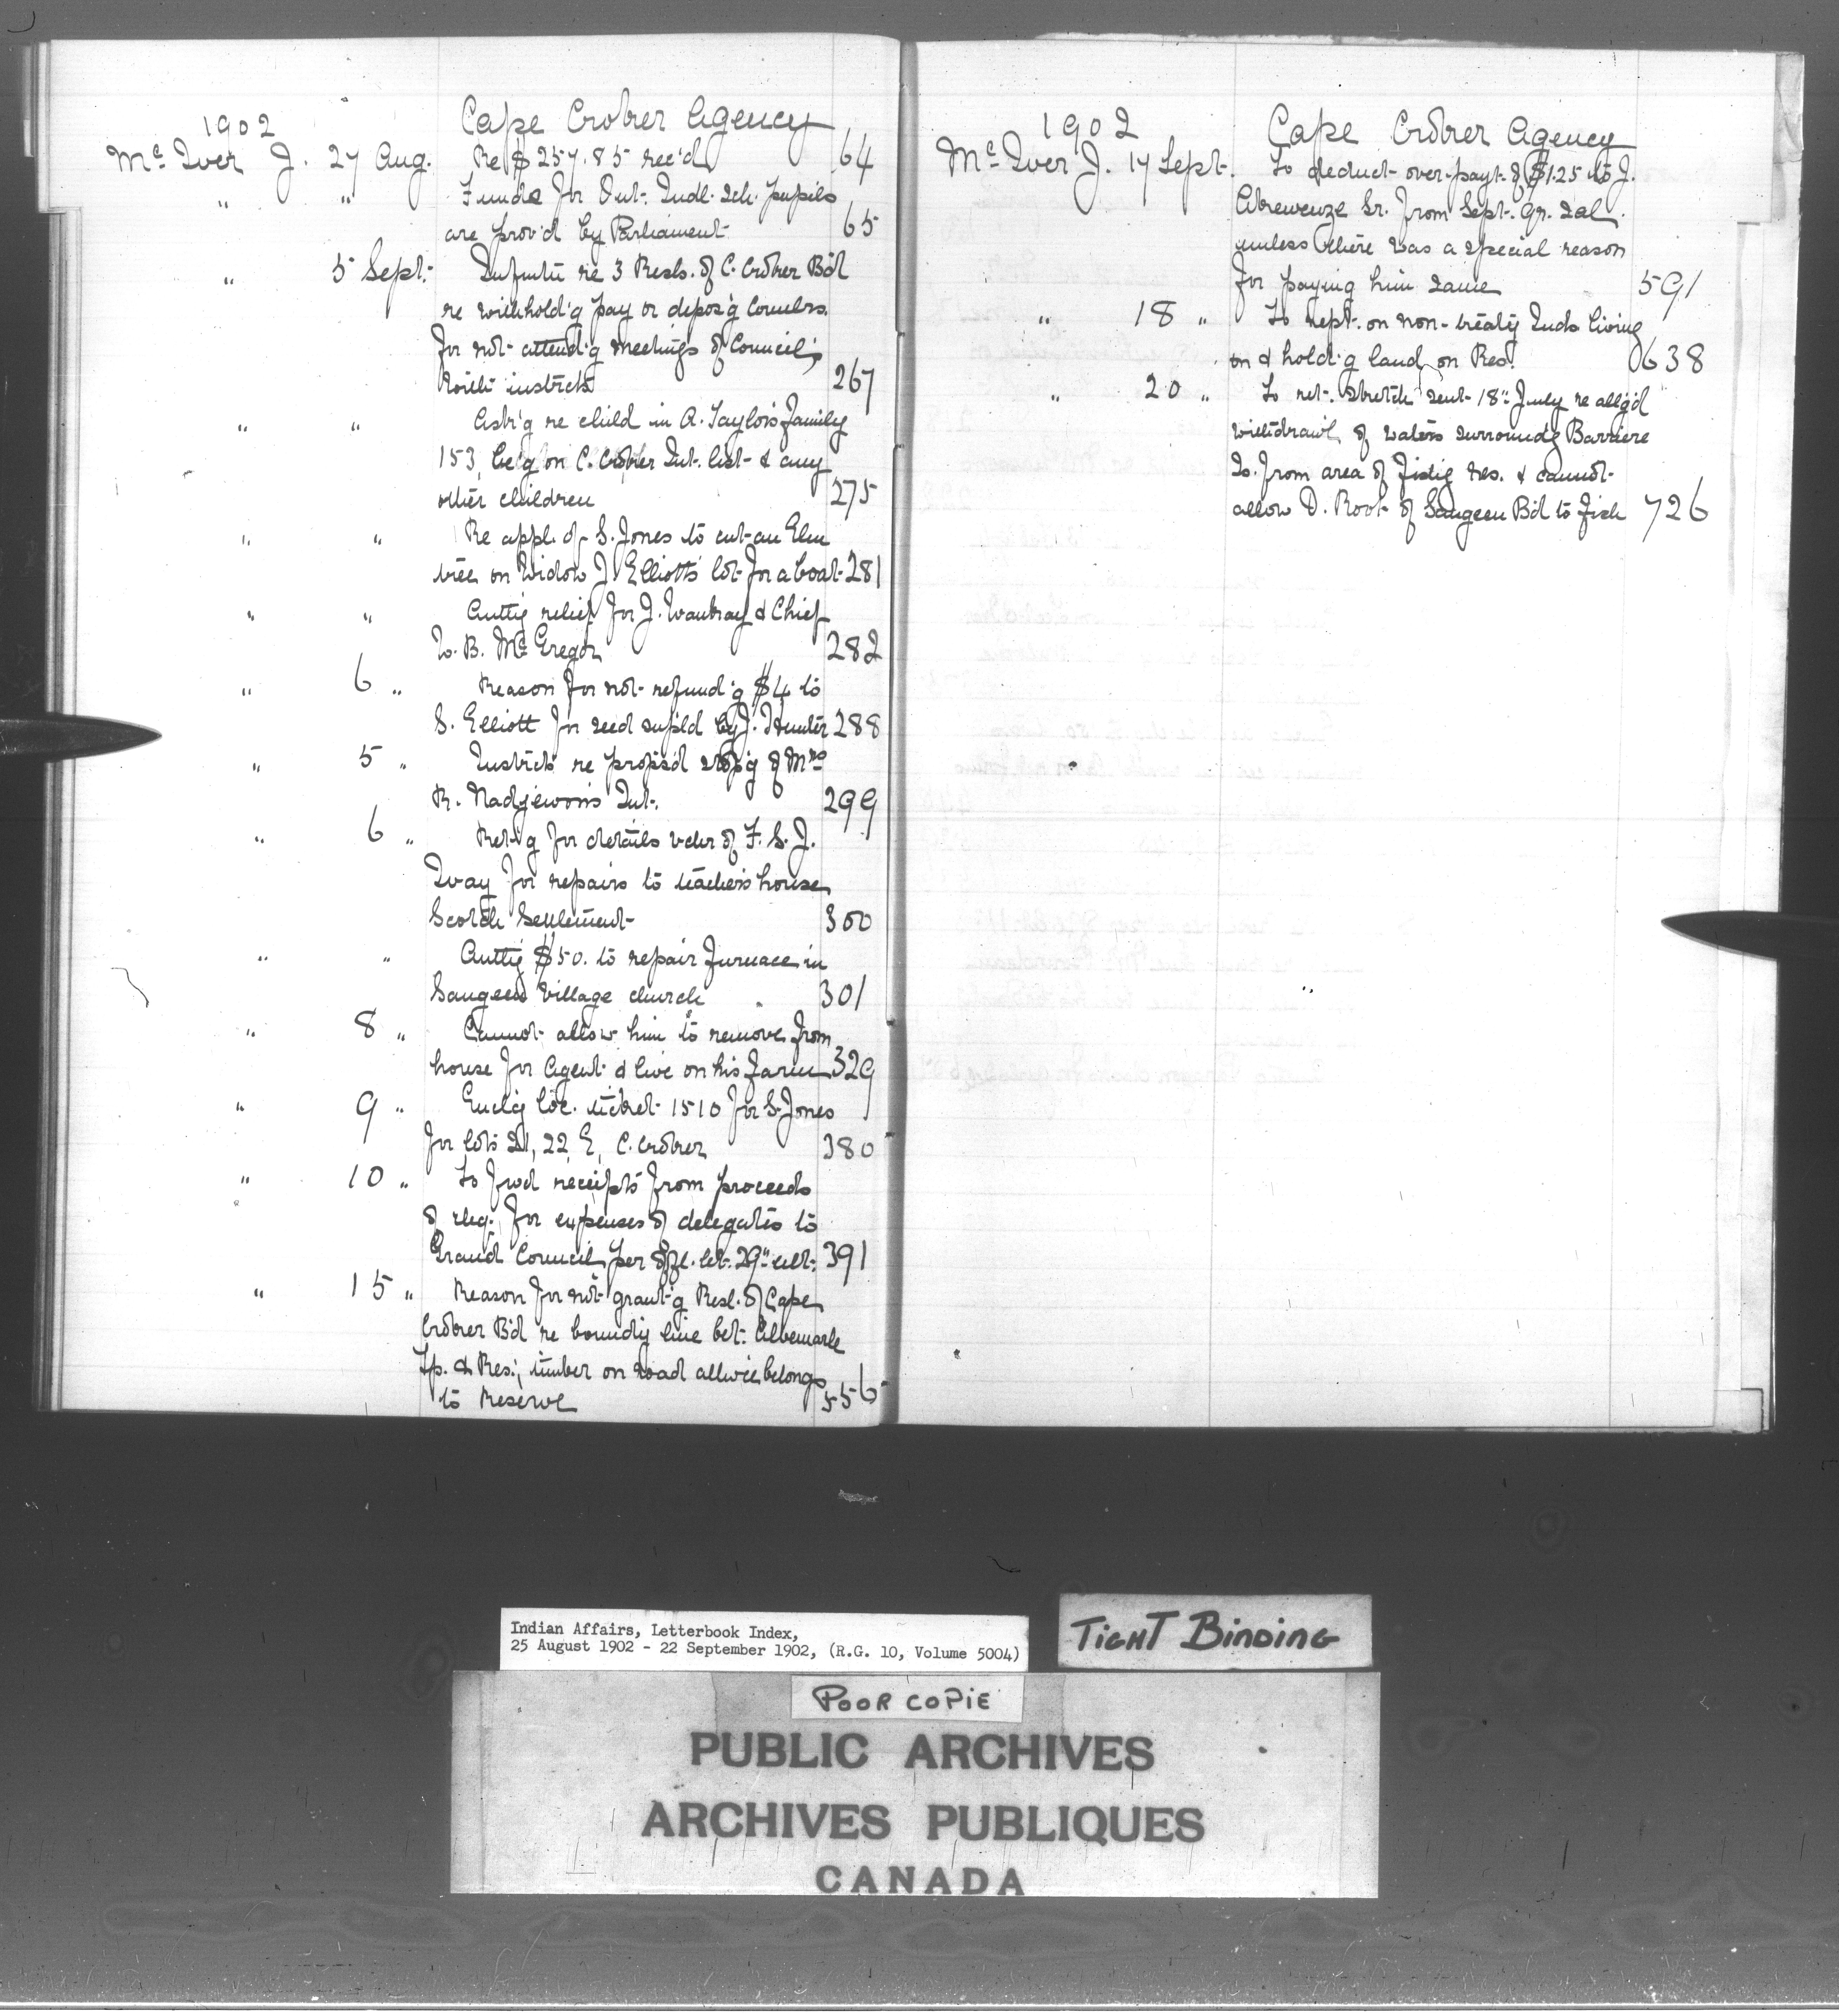 1902 Cape Croker Agency
McIver J. 27 Aug. Re $257.85 rec'd 64
" " Funds for Int. Indl. Sch. pupils
are prov'd by Parliament 65
" 5 Sept. Infmtn re 3 Resls. of C. Croker B'd
re withhold'g pay or depos'g Counclrs.
for not attend'g meetings of Council;
with instrcts 267
" " Ask'g re child in A. Taylor's family
153, be'g on C. Croker Int. list & any
other children 275
" " Re appl. of S. Jones to cut an Elm
tree on Widow J. Elliott's lot for a boat 281
" " Auth'g relief for J. & Chief
W. B. McGregor 282
" 6 " Reason for not refund'g $4 to
S. Elliott for seed supl'd by J. Hunter 288
" 5 " Instrcts re propos'd stop'g of Mrs
R. Nadjewon's Int. 299
" 6 " Ret'g for details vchr of F. S. J.
Ivay for repairs to teacher's house,
Scotch Settlement 300
" " Auth'g $50. to repair furnace in
Saugeen Village church 301
" 8 " Cannot allow him to remove from
house for Agent & live on his farm 329
" 9 " Encl'g loc. ticket 1510 for S. Jones
for lots 21, 22, E, C. Croker 380
" 10 " To fwd receipts from proceeds
of chq. for expenses of delegates to
Grand Council, per offl. let. 29" ult. 391
" 15 " Reason for not grant'g Resl. of Cape
Croker B'd re bound'y line bet. Albemarle
Tp. & Res.; timber on road allw'ce belongs
to Reserve 556
1902 Cape Croker Agency
McIver J. 17 Sept. To deduct over-payt. of $1.25 to J.
Sr. from Sept. qr. sal.
unless there was a special reason
for paying him same 591
" 18 " To rept. on non-treaty Inds living
on & hold'g land on Res. 638
" 20 " To ret. sketch sent 18" July re alleg'd
withdrawl. of waters surround'g Barriere
Is. from area of fish'g res. & cannot
allow D. Root of Saugeen B'd to fish 726
Indian Affairs, Letterbook Index,
25 August 1902 - 22 September 1902, (R.G. 10, Volume 5004)
TIGHT BINDING
POOR COPIE
PUBLIC ARCHIVES
ARCHIVES PUBLIQUES
CANADA